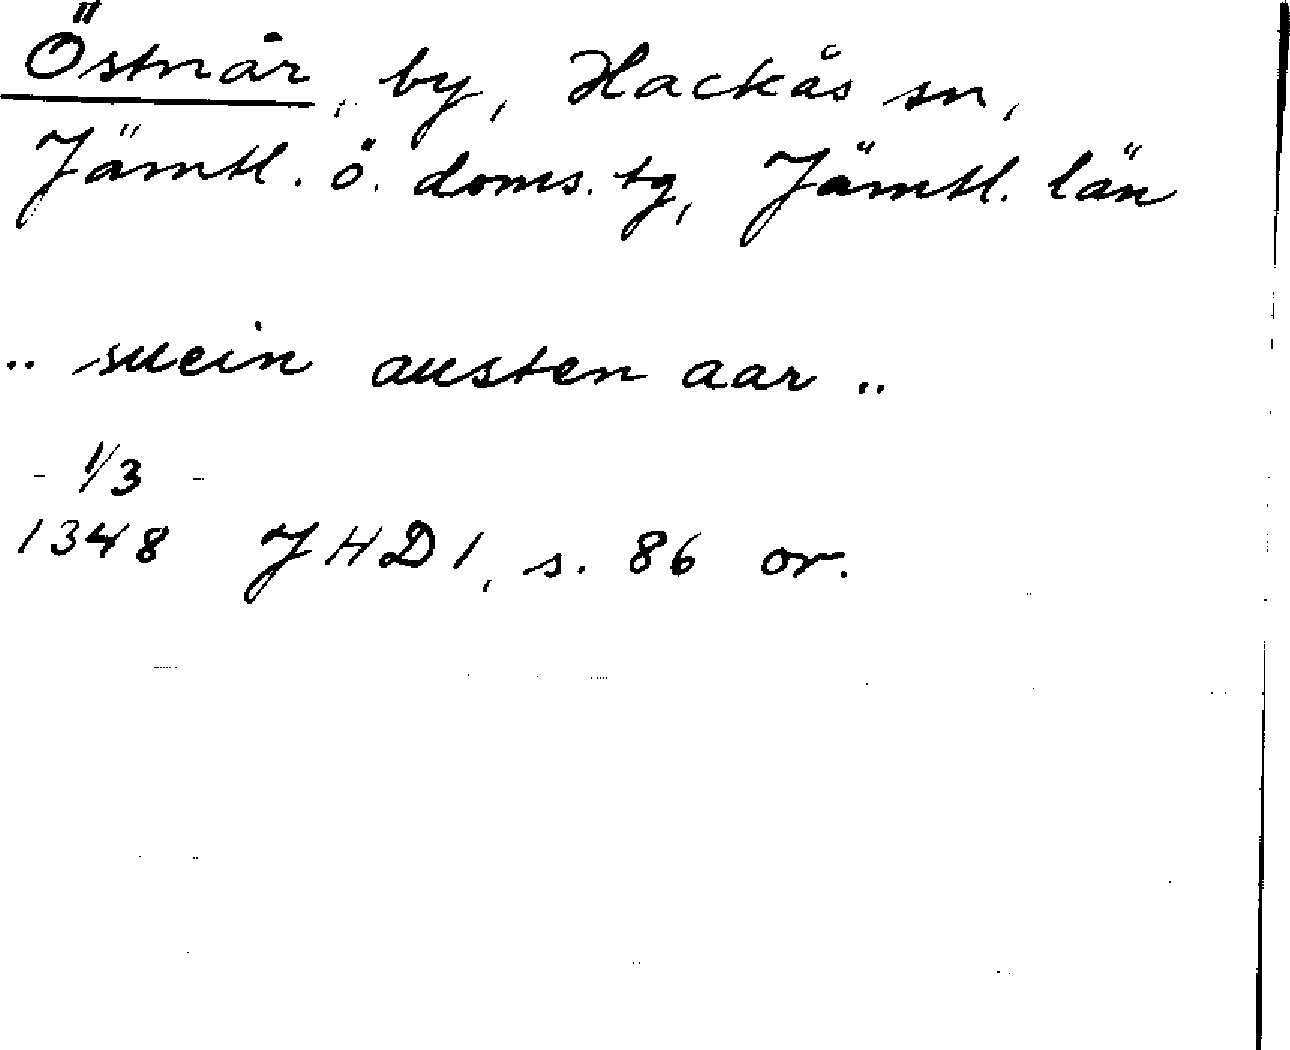 Östnår, by, Hackås sn,
Jämtl. ö. doms. tg, Jämtl. län
.. suein austen aar ..
- 1/3 -
1348 JHD 1, s. 86 or.